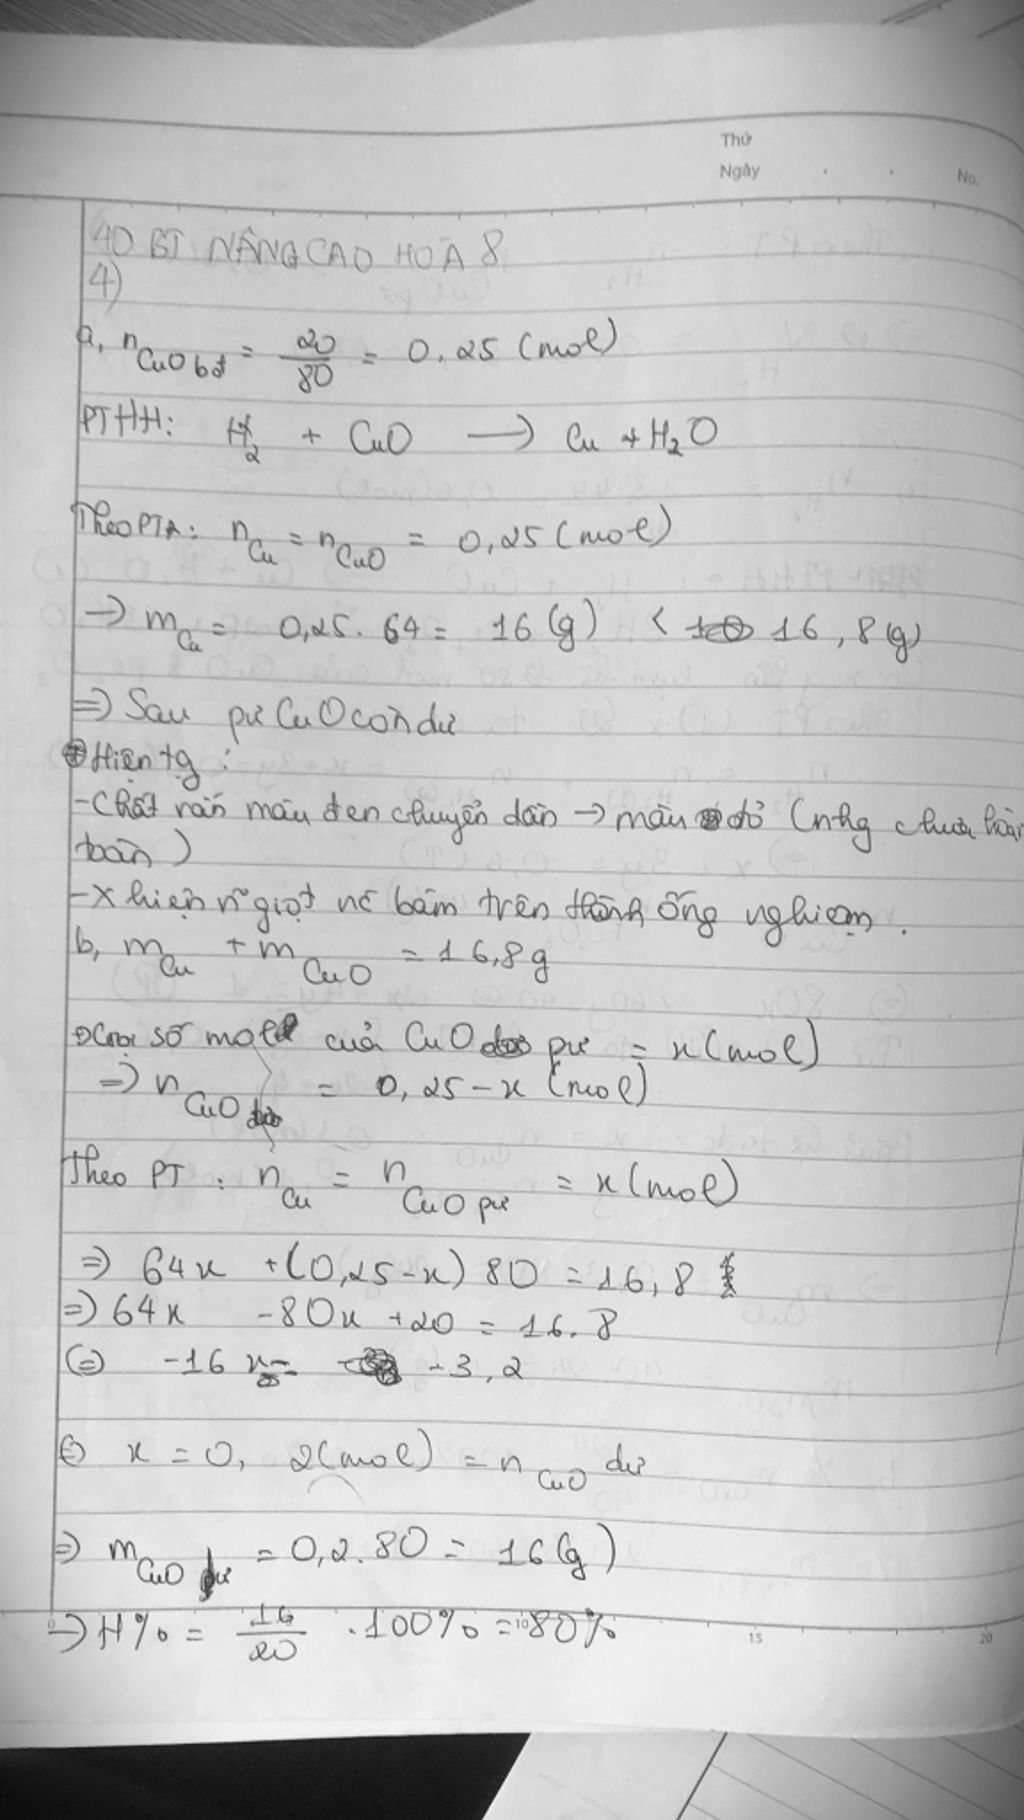 Thứ
Ngày . . No.
40 BT NÂNG CAO HOÁ 8
4)
a, n CuO bđ = 20/80 = 0,25 (mol)
PTHH: H2 + CuO → Cu + H2O
Theo PT: n Cu = n CuO = 0,25 (mol)
→ m Cu = 0,25 . 64 = 16 (g) < 16,8 (g)
=> Sau pư CuO còn dư
Hiện tg :
- Chất rắn màu đen chuyển dần → màu đỏ (nhg chưa hoàn
toàn)
- X hiện n~ giọt nc bám trên thành ống nghiệm.
b, m Cu + m CuO = 16,8g
Gọi số mol của CuO pư = x (mol)
=> n CuO = 0,25 - x (mol)
Theo PT : n Cu = n CuO pư = x (mol)
=> 64x + (0,25 - x) 80 = 16,8
=> 64x - 80x + 20 = 16.8
(=) -16x = -3,2
(=) x = 0,2 (mol) = n CuO dư
=> m CuO pư = 0,2 . 80 = 16 (g)
=> H% = 16/20 . 100% = 80%
0 10 15 20